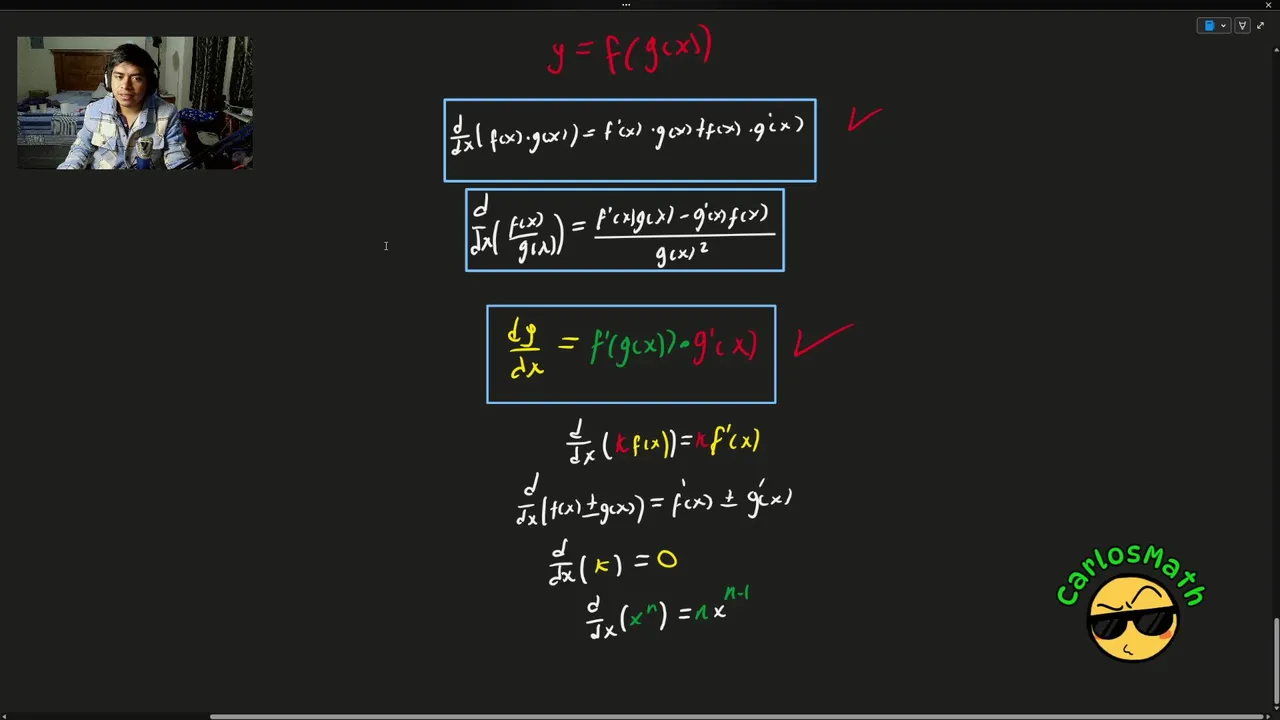 y = f(g(x))
d/dx(f(x)·g(x)) = f'(x)·g(x)+f(x)·g'(x)
d/dx(f(x)/g(x)) = (f'(x)g(x)-g'(x)f(x))/g(x)²
dy/dx = f'(g(x))·g'(x)
d/dx(kf(x))=kf'(x)
d/dx(f(x)±g(x)) = f'(x) ± g'(x)
d/dx(k) = 0
d/dx(xⁿ) = nxⁿ⁻¹
CarlosMath